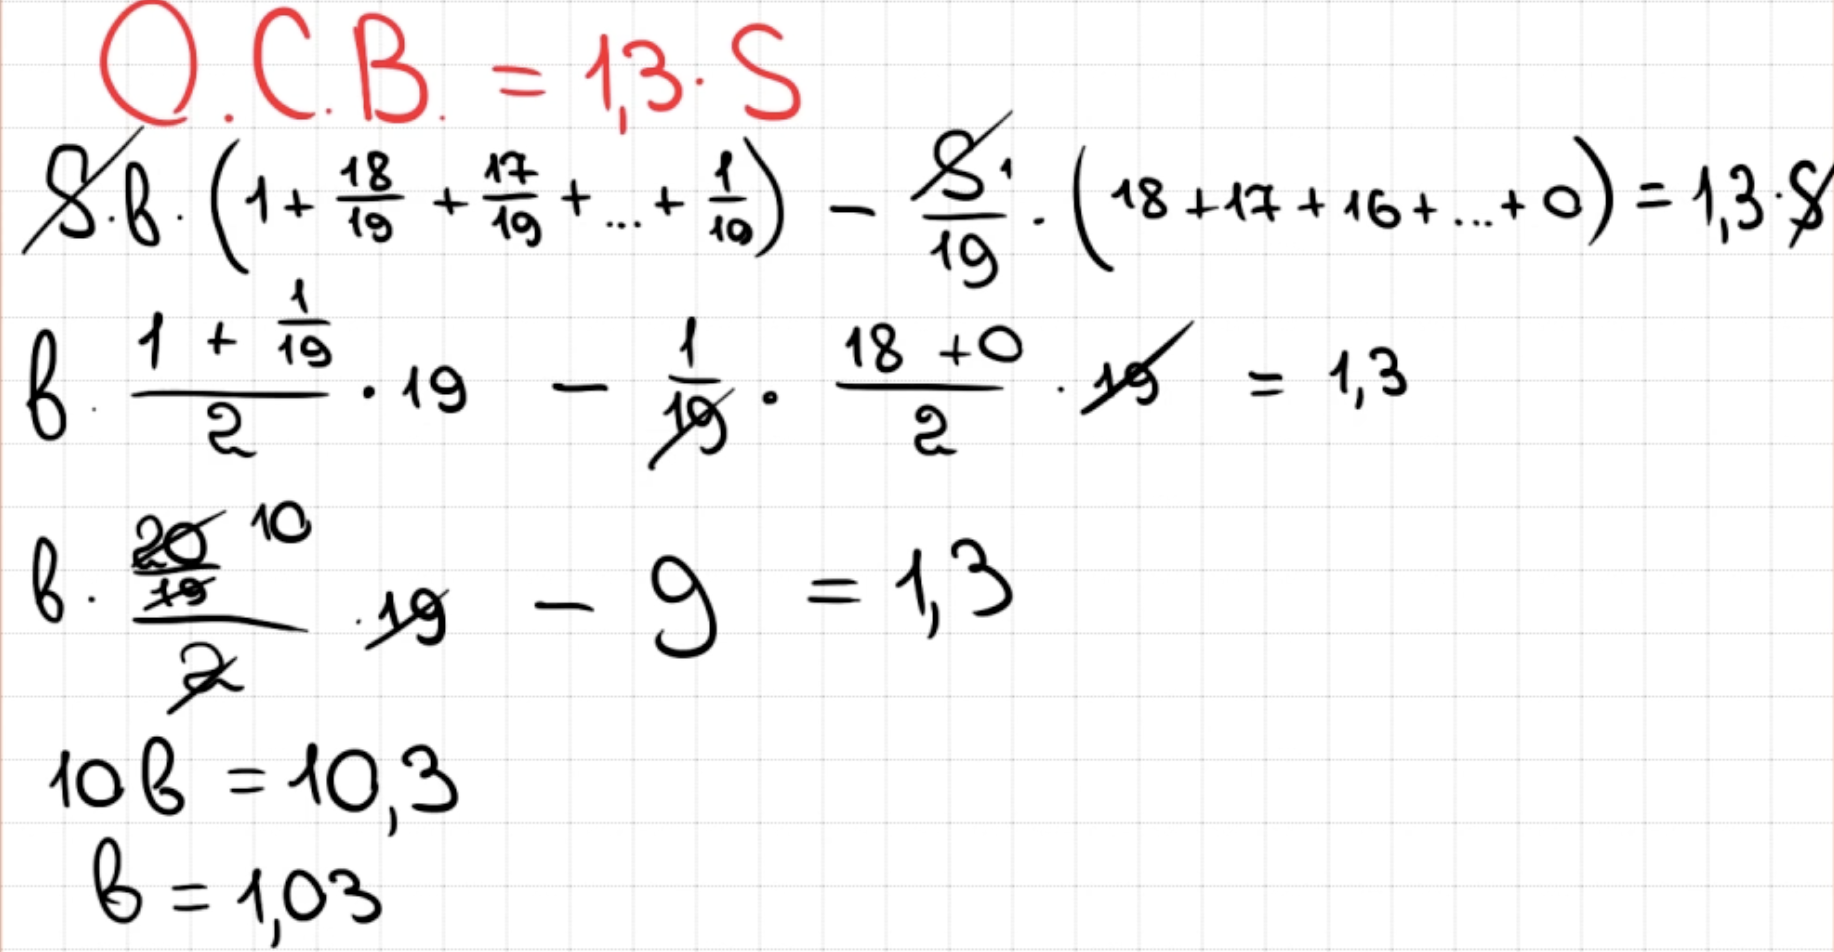 О.С.В. = 1,3·S
S·b·(1 + 18/19 + 17/19 + ... + 1/19) − S/19·(18+17+16+...+0) = 1,3·S
b·(1 + 1/19)/2·19 − 1/19·(18+0)/2·19 = 1,3
b·(20/19)/2 10·19 − 9 = 1,3
10b = 10,3
b = 1,03